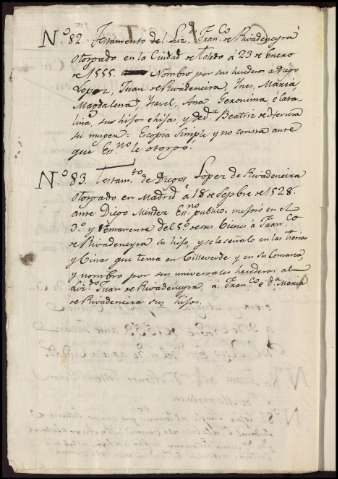 Nº 82. Testamento del Liz.do Fran.co de Rivadeneyra
otorgado en la Ciudad de Toledo á 23 de Enero
de 1555. Nombro por sus herederos a Diego
Lopez, Juan de Rivadeneira, Ines, Maria
Magdalena, Isavel, Ana Geronima, é Cata
lina, sus hijos é hijas, y de D.ª Beatriz de
su muger. Es copia simple y no consta ante
que Es.no le otorgo.
Nº 83. Testam.to de Diego Lopez de Rivadeneira
otorgado en Madrid á 18 de Septbre de 1528.
ante Diego Mendez Es.no publico, mejoró en el
3.º y remanente del 5.º de sus bienes á Fran.co
de Rivadeneyra su hijo, y se lo señaló en las tierras
y Casas que tenia en Villaverde y en su Comarca,
y nombró por sus universales herederos al
Juan de Rivadeneyra, á Fran.co é D.ª Maria
de Rivadeneira sus hijos.